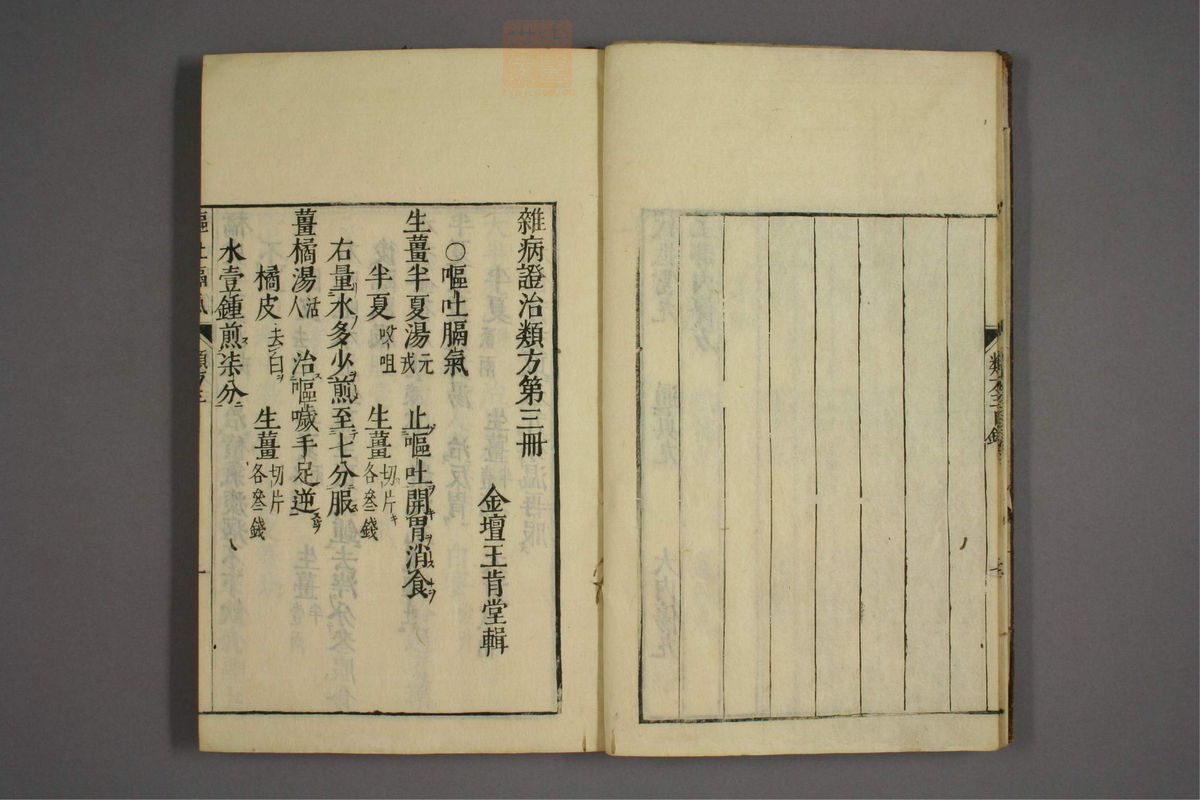 雜病證治類方第三冊
金壇王肯堂輯
○嘔吐膈氣
生薑半夏湯元戎 止嘔吐開胃消食
半夏㕮咀 生薑切片各叁錢
右量水多少煎至七分服
薑橘湯活人 治嘔噦手足逆
橘皮去白 生薑切片各叁錢
水壹鍾煎柒分
嘔吐膈氣 類方三 一